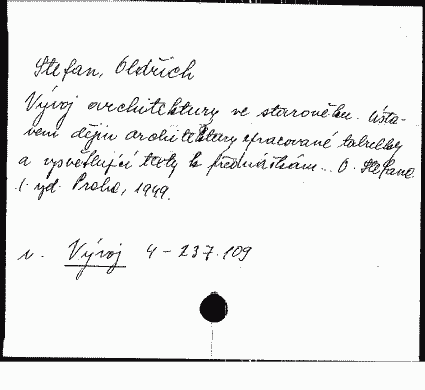 Stefan, Oldřich
Vývoj architektury ve starověku. Ústa-
vem dějin architektury zpracované tabulky
a vysvětlující texty k přednáškám .. O. Stefana.
1. vyd. Praha, 1949.
v. Vývoj 4-237.109